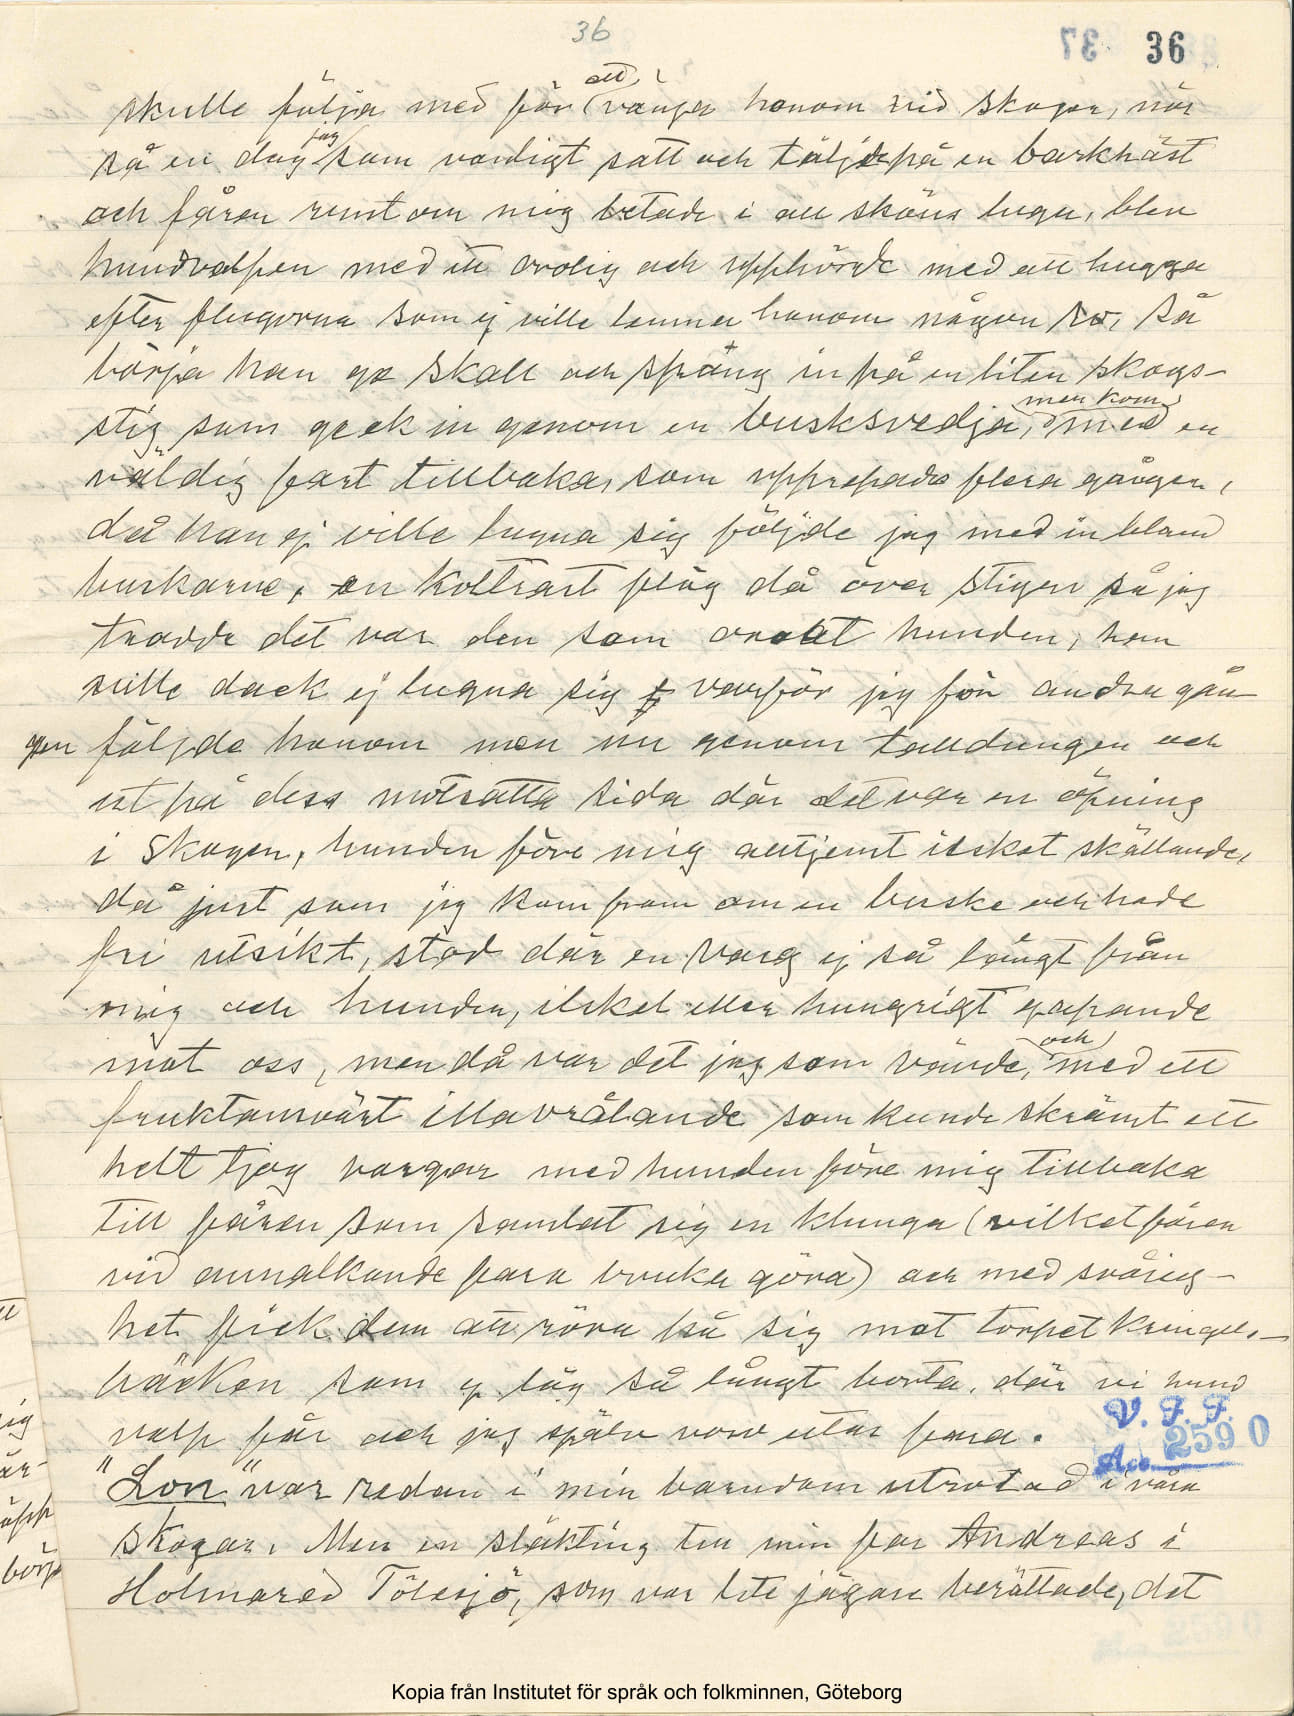 36
36
skulle följa med för att vänja honom vid skogen, när
så en dag jag som vanligt satt och täljde på en barkhäst
och fåren runt om mig betade i all sköns lugn, blev
hundvalpen med ett orolig och upphörde med att hugga
efter flugorna som ej ville lemna honom någon ro, så
börja han ge skall och sprang in på en liten skogs-
stig som geck in genom en busksvedja, men kom med en
väldig fart tillbaka, som upprepades flera gånger,
då han ej ville lugna sig följde jag med in bland
buskarne, en koltrast flög då över stigen så jag
trodde det var den som oroat hunden, han
ville dock ej lugna sig varför jag för andra gån
gen följde honom men nu genom talldungen och
ut på dess motsatta sida där det var en öpning
i skogen, hunden före mig alltjemt ilsket skällande,
då just som jag kom fram om en buske och hade
fri utsikt, stod där en varg ej så långt från
mig och hunden, ilsket eller hungrigt gapande
mot oss, men då var det jag som vände, och med ett
fruktansvärt illavrålande som kunde skrämt ett
helt tjog vargar med hunden före mig tillbaka
till fåren som samlat sig en klunga (vilket fåren
vid annalkande fara bruka göra) och med svårig-
het fick dem att röra på sig mot torpet Kringel-
bäcken som ej låg så långt borta, där vi hund
valp får och jag själv vorv utar fara.
V. F. F.
Acc 2590
"Lon" var redan i min barndom utrotad i våra
skogar. Men en släkting till min far Andreas i
Holmared Tölesjö, som var lite jägare berättade, det
Kopia från Institutet för språk och folkminnen, Göteborg